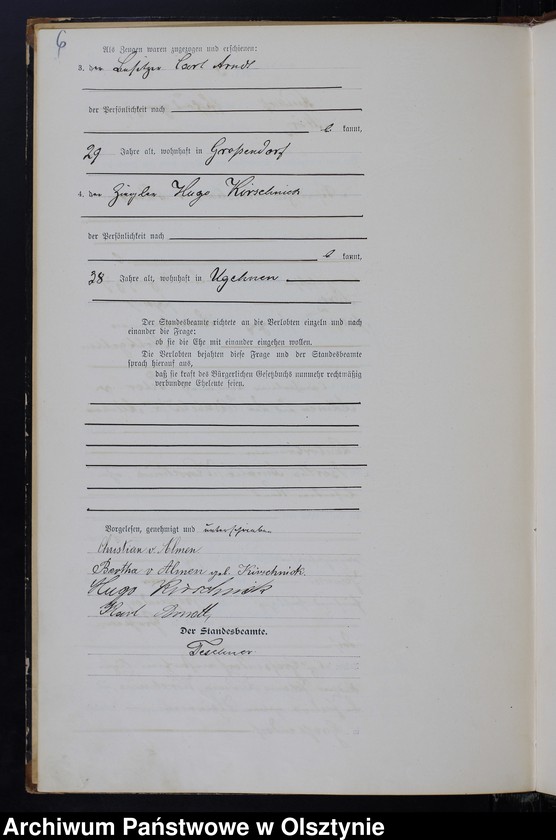 6
Als Zeugen waren zugezogen und erschienen:
3. der Besitzer Carl Arndt
der Persönlichkeit nach
be kannt,
29 Jahre alt, wohnhaft in Großendorf
4. der Ziegler Hugo Kirschnick
der Persönlichkeit nach
be kannt,
28 Jahre alt, wohnhaft in Ugehnen
Der Standesbeamte richtete an die Verlobten einzeln und nach
einander die Frage:
ob sie die Ehe mit einander eingehen wollen.
Die Verlobten bejahten diese Frage und der Standesbeamte
sprach hierauf aus,
daß sie kraft des Bürgerlichen Gesetzbuchs nunmehr rechtmäßig
verbundene Eheleute seien.
Vorgelesen, genehmigt und unterschrieben
Christian v. Almen
Bertha v. Almen geb. Kirschnick.
Hugo Kirschnick
Karl Arndt,
Der Standesbeamte.
Teschner
Archiwum Państwowe w Olsztynie